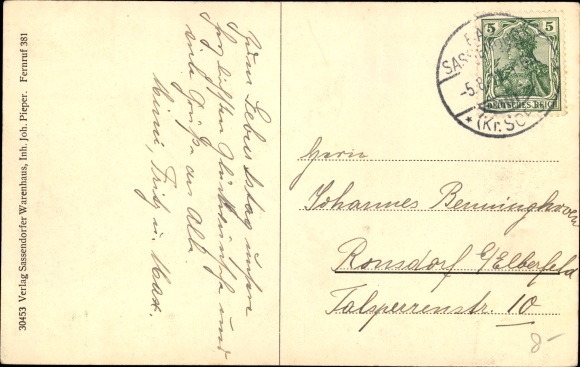 30453 Verlag Sassendorfer Warenhaus, Inh. Joh. Pieper. Fernruf 381
Zum Lebenstag
herzlichsten Glückwünsche und
viele Grüße an Alle
Mimi, Fritz u. Max.
5 5
DEUTSCHES REICH
SAS
-5.8
*(Kr. SO
Herrn
Johannes Benninghoven
Ronsdorf b/Elberfeld
Talsperrenstr. 10
8